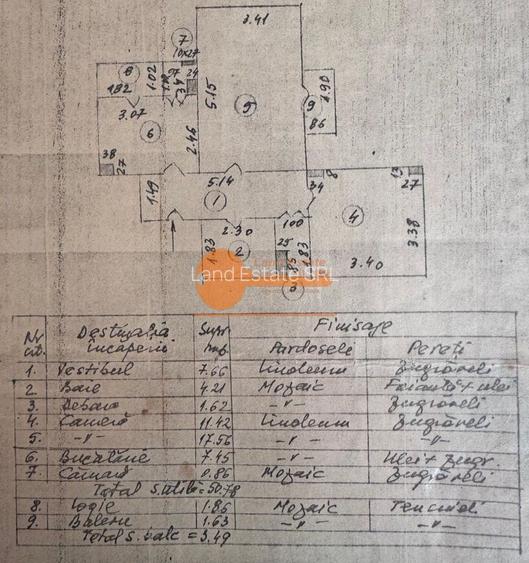 3.41
7
10x27
8
1.02
97
24
182
3.07
5.15
5
9
1.90
86
6
2.46
38
27
34
8
13
27
1.49
5.14
1
4
2.30
100
1.83
2
25
1.83
3.38
3.40
Land Estate SRL
Nr. crt.
Destinația încăperii
Supr. mp.
Finisaje
Pardoseli
Pereți
1. Vestibul 7.66 Linoleum Zugrăveli
2 Baie 4.21 Mozaic Faianță + ulei
3. Debara 1.62 -"- Zugrăveli
4. Cameră 11.42 Linoleum Zugrăveli
5. -"- 17.56 -"- -"-
6. Bucătărie 7.45 Ulei + zugr
7. Cămară 0.86 Mozaic Zugrăveli
Total S. utilă = 50.78
8. Logie 1.86 Mozaic Tencuieli
9. Balcon 1.63 -"- -"-
Total s. balc = 3.49